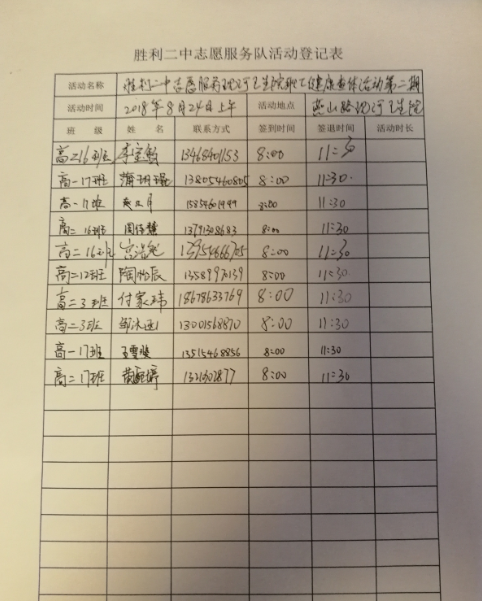 胜利二中志愿服务队活动登记表
活动名称 胜利二中志愿服务现河卫生院职工健康查体活动第二期
活动时间 2018年8月24日上午 活动地点 燕山路现河卫生院
班 级 姓 名 联系方式 签到时间 签退时间 活动时长
高二16班 李宝敏 8:00 11:30
高一17班 13805460805 8:00 11:30
高一17班 8:00 11:30
高二16班 13791308683 8:00 11:30
高二16班 宫浩然 13954666705 8:00 11:30
高二12班 陶怡辰 8:00 11:30
高二3班 付家玮 18678633769 8:00 11:30
高二3班 邹冰逊 13001568870 8:00 11:30
高一17班 王雪 13515468856 8:00 11:30
高二17班 8:00 11:30